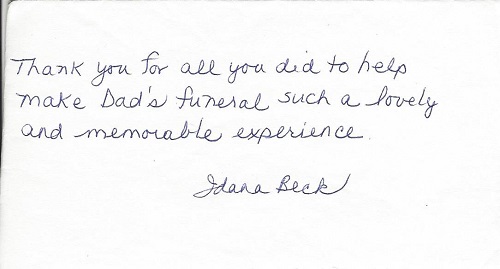 Thank you for all you did to help
make Dad's funeral such a lovely
and memorable experience.
Idana Beck